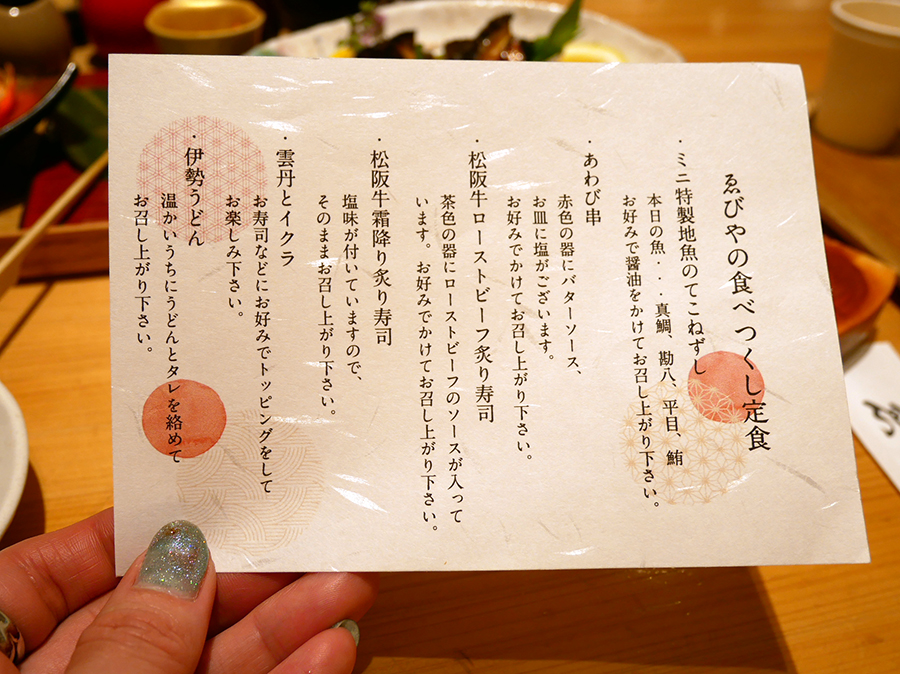 ゑびやの食べつくし定食
・ミニ特製地魚のてこねずし
本日の魚・・真鯛、勘八、平目、鮪
お好みで醤油をかけてお召し上がり下さい。
・あわび串
赤色の器にバターソース、
お皿に塩がございます。
お好みでかけてお召し上がり下さい。
・松阪牛ローストビーフ炙り寿司
茶色の器にローストビーフのソースが入って
います。お好みでかけてお召し上がり下さい。
・松阪牛霜降り炙り寿司
塩味が付いていますので、
そのままお召し上がり下さい。
・雲丹とイクラ
お寿司などにお好みでトッピングをして
お楽しみ下さい。
・伊勢うどん
温かいうちにうどんとタレを絡めて
お召し上がり下さい。